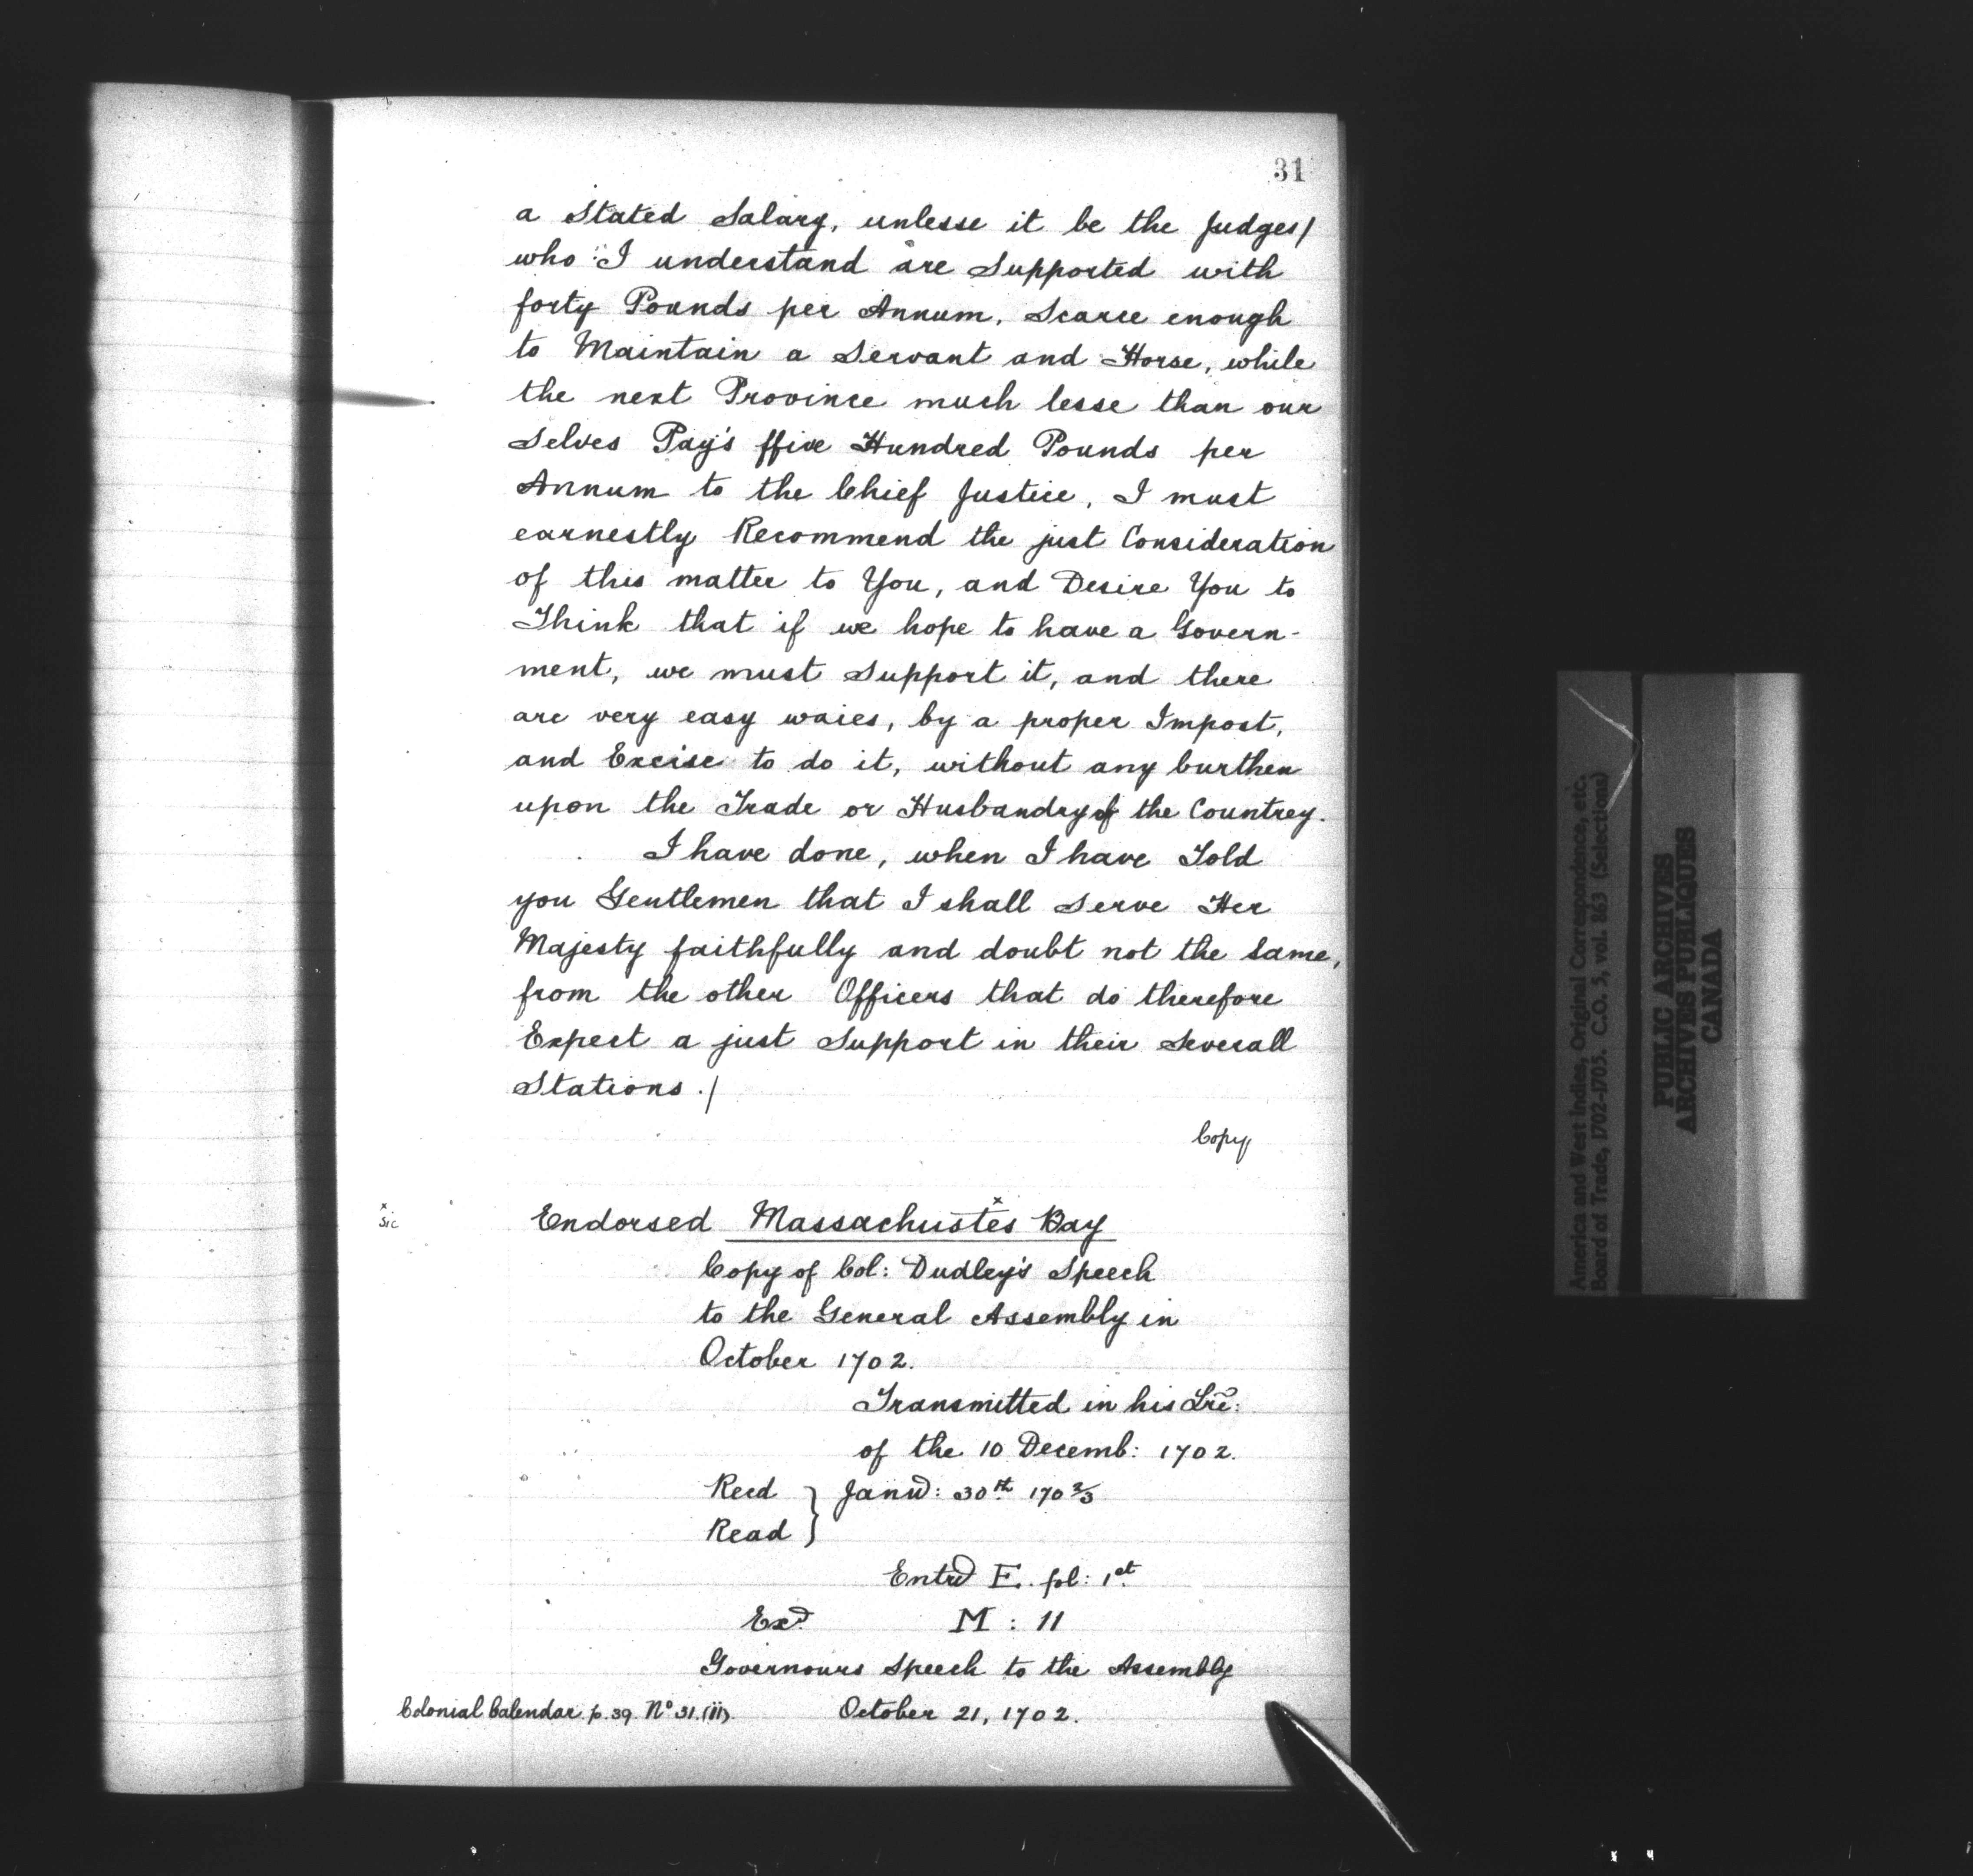 31
a Stated Salary, unlesse it be the Judges/
who I understand are Supported with
forty Pounds per Annum, Scarce enough
to Maintain a Servant and Horse, while
the next Province much lesse than our
Selves Pay's ffive Hundred Pounds per
Annum to the Chief Justice, I must
earnestly Recommend the just Consideration
of this matter to You, and Desire You to
Think that if we hope to have a Govern-
ment, we must Support it, and there
are very easy waies, by a proper Impost,
and Excise to do it, without any burthen
upon the Trade or Husbandry of the Countrey.
I have done, when I have Told
you Gentlemen that I shall Serve Her
Majesty faithfully and doubt not the Same,
from the other Officers that do therefore
Expect a just Support in their Severall
Stations ./
Copy
x
Sic
Endorsed Massachustes x Bay
Copy of Col: Dudley's Speech
to the General Assembly in
October 1702.
Transmitted in his Lr̃e:
of the 10 Decemb: 1702.
Recd } Janry: 30th 170 2/3
Read
Entrd E. fol: 1st
Exd M : 11
Governours Speech to the Assembly
October 21, 1702.
Colonial Calendar p. 39. No 31. (ii).
America and West Indies, Original Correspondence, etc.
Board of Trade, 1702-1705. C.O. 5, vol. 863 (Selections)
PUBLIC ARCHIVES
ARCHIVES PUBLIQUES
CANADA